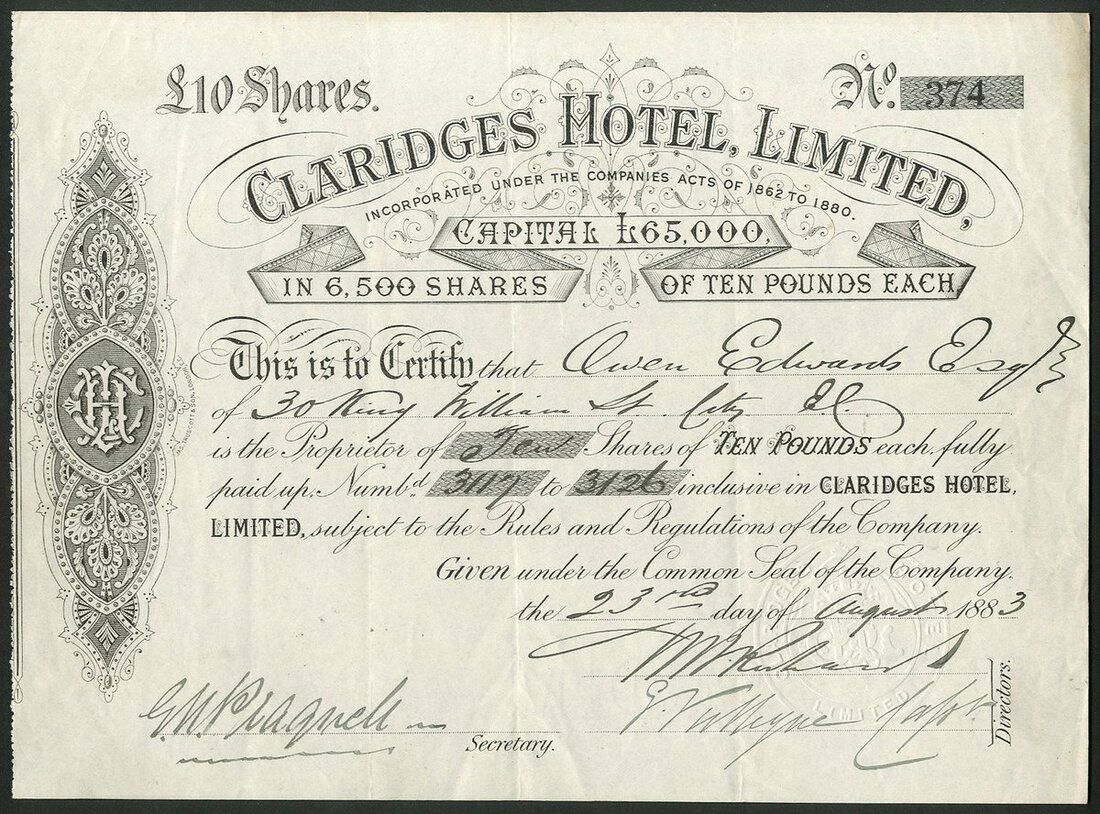 £10 Shares.
No. 374
CLARIDGES HOTEL, LIMITED,
INCORPORATED UNDER THE COMPANIES ACTS OF 1862 TO 1880.
CAPITAL £65,000,
IN 6,500 SHARES OF TEN POUNDS EACH.
This is to Certify that Owen Edwards Esqr
of 30 King William St. City EC
is the Proprietor of Ten Shares of TEN POUNDS each, fully
paid up, Numbd 3117 to 3126 inclusive in CLARIDGES HOTEL,
LIMITED, subject to the Rules and Regulations of the Company.
Given under the Common Seal of the Company.
the 23rd day of August 1883
Directors.
Secretary.
LIMITED